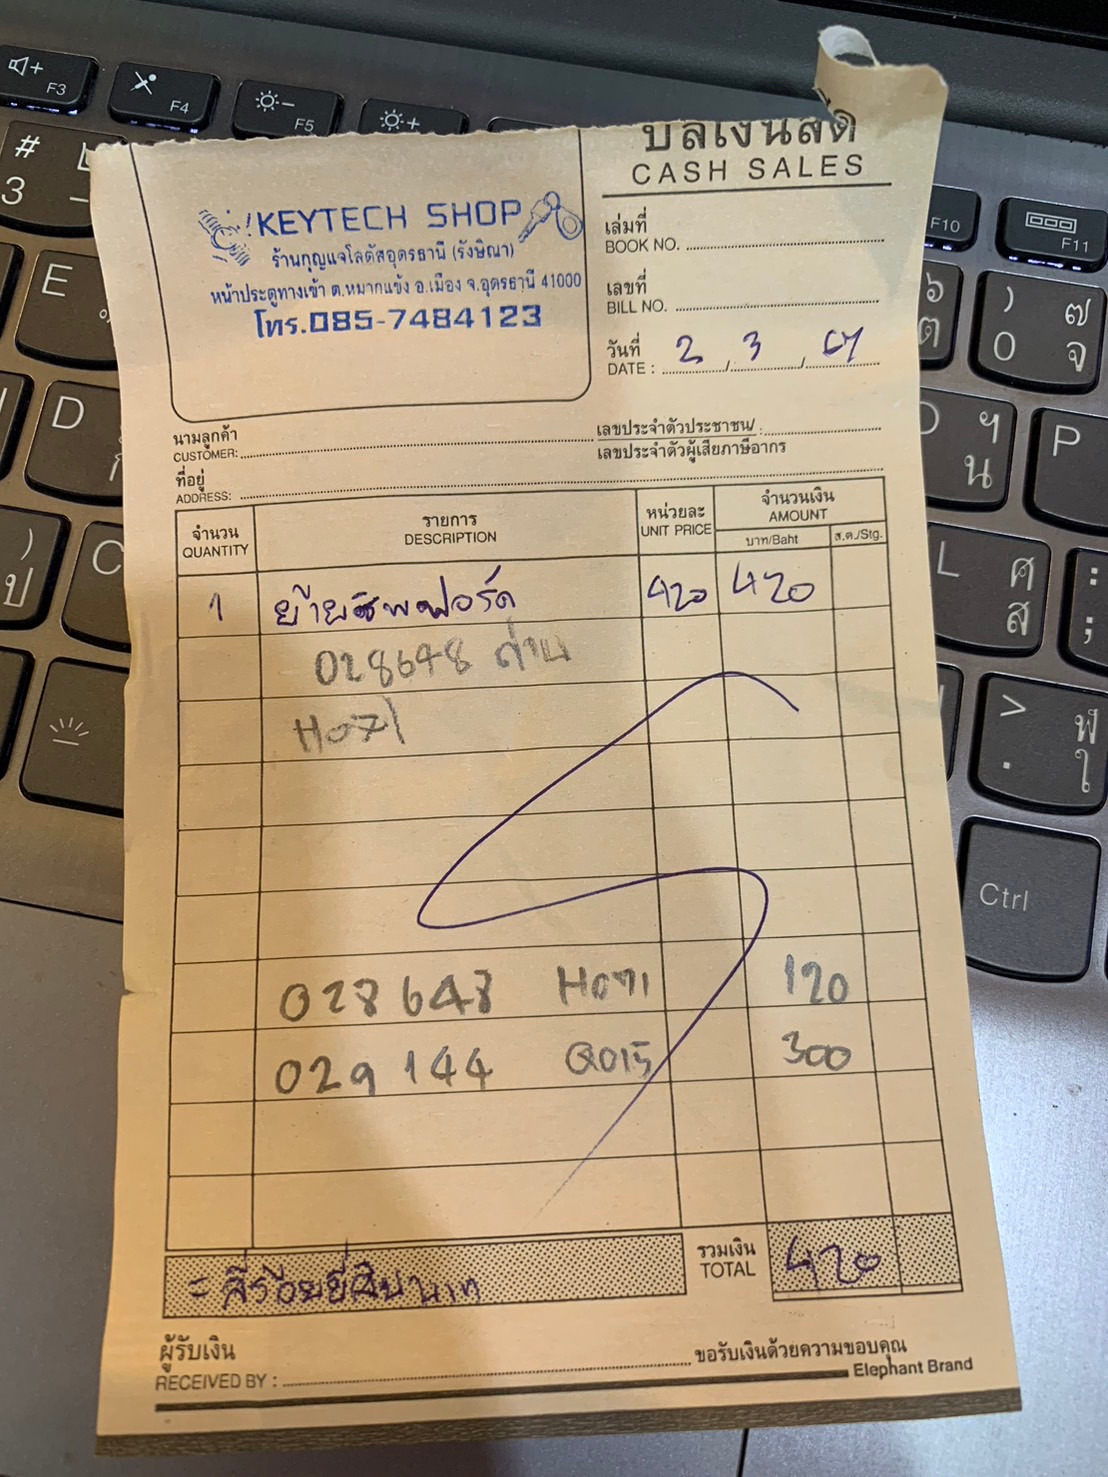 บิลเงินสด
CASH SALES
KEYTECH SHOP
ร้านกุญแจโลตัสอุดรธานี (รังษิณา)
หน้าประตูทางเข้า ต.หมากแข้ง อ.เมือง จ.อุดรธานี 41000
โทร.085-7484123
เล่มที่
BOOK NO.
เลขที่
BILL NO.
วันที่
DATE : 2 / 3 / 67
นามลูกค้า
CUSTOMER:
เลขประจำตัวประชาชน/ :
เลขประจำตัวผู้เสียภาษีอากร
ที่อยู่
ADDRESS:
จำนวน รายการ หน่วยละ จำนวนเงิน
QUANTITY DESCRIPTION UNIT PRICE AMOUNT
บาท/Baht ส.ต./Stg.
1 420 420
028648 ถ่าน
H071
028648 H071 120
029144 Q015 300
รวมเงิน
TOTAL 420
= สี่ร้อยยี่สิบบาท
ผู้รับเงิน
RECEIVED BY :
ขอรับเงินด้วยความขอบคุณ
Elephant Brand
# 3
E
D
C
F3
F4
F5
F10
F11
) ๗
0 จ
๖
ต
ฯ
น
P
L ศ
ส
:
;
> ฬ
. ใ
Ctrl
)
ป